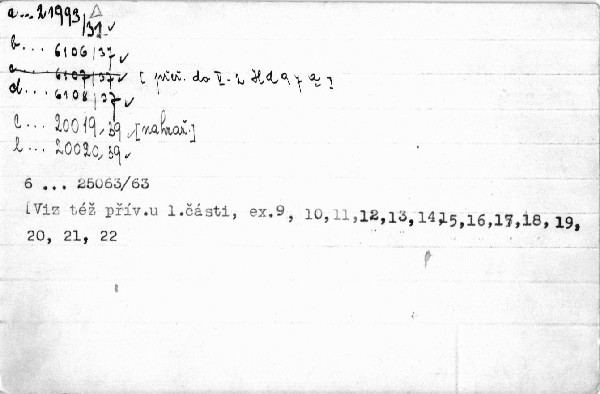 a...21993/31
b... 6106/37
c... 6107/37 [ přiv. do II-2 H d 9
d... 6108/37
c... 20019/39 [nahraž.]
l... 20020/39
6 ... 25063/63
[Viz též přív.u 1.části, ex.9, 10,11,12,13,1415,16,17,18, 19,
20, 21, 22